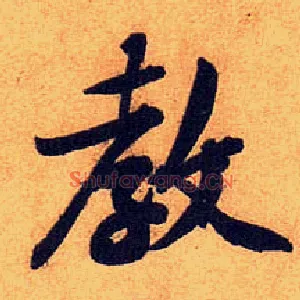 教
Shufawang.CN